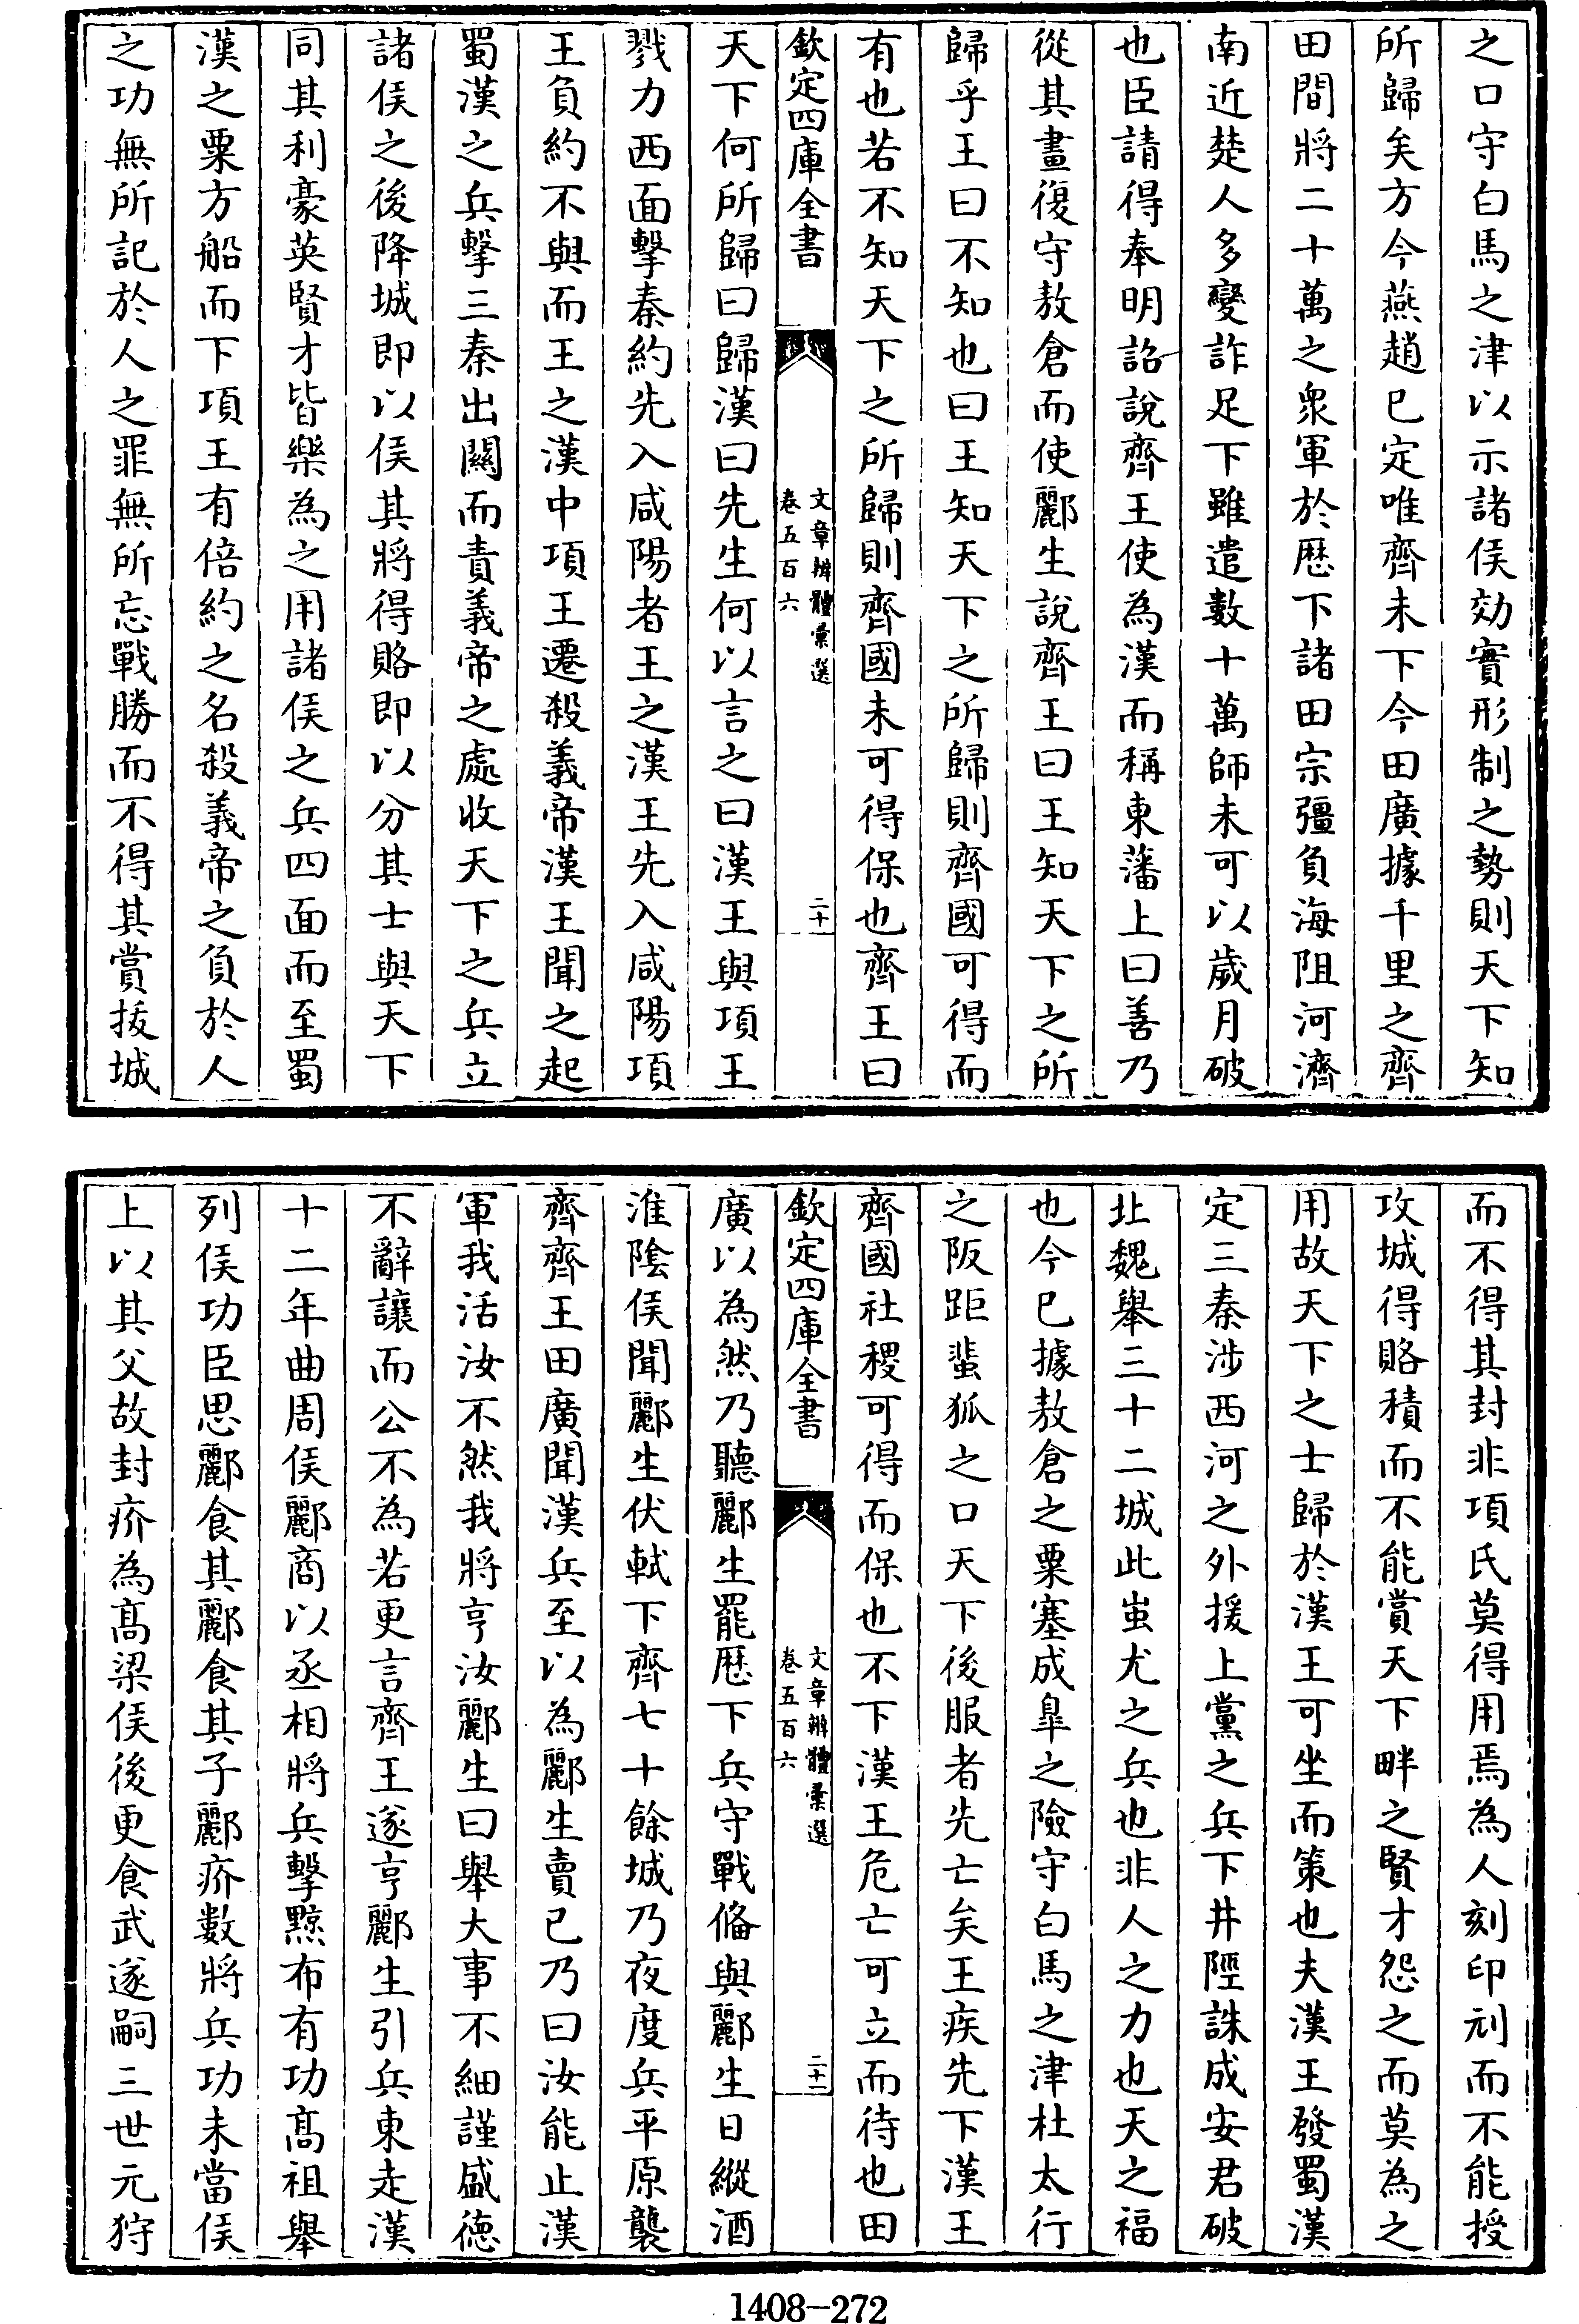 之口守白馬之津以示諸侯効實形制之勢則天下知
所歸矣方今燕趙已定唯齊未下今田廣據千里之齊
田間將二十萬之衆軍於歴下諸田宗彊負海阻河濟
南近楚人多變詐足下雖遣數十萬師未可以歲月破
也臣請得奉明詔說齊王使為漢而稱東藩上曰善乃
從其畫復守敖倉而使酈生說齊王曰王知天下之所
歸乎王曰不知也曰王知天下之所歸則齊國可得而
有也若不知天下之所歸則齊國未可得保也齊王曰
欽定四庫全書
文章辨體彙選
卷五百六
二十
天下何所歸曰歸漢曰先生何以言之曰漢王與項王
戮力西面擊秦約先入咸陽者王之漢王先入咸陽項
王負約不與而王之漢中項王遷殺義帝漢王聞之起
蜀漢之兵擊三秦出關而責義帝之處收天下之兵立
諸侯之後降城即以侯其將得賂即以分其士與天下
同其利豪英賢才皆樂為之用諸侯之兵四面而至蜀
漢之粟方船而下項王有倍約之名殺義帝之負於人
之功無所記於人之罪無所忘戰勝而不得其賞拔城
而不得其封非項氏莫得用焉為人刻印刓而不能授
攻城得賂積而不能賞天下畔之賢才怨之而莫為之
用故天下之士歸於漢王可坐而策也夫漢王發蜀漢
定三秦涉西河之外援上黨之兵下井陘誅成安君破
北魏舉三十二城此蚩尤之兵也非人之力也天之福
也今已據敖倉之粟塞成臯之險守白馬之津杜太行
之阪距蜚狐之口天下後服者先亡矣王疾先下漢王
齊國社稷可得而保也不下漢王危亡可立而待也田
欽定四庫全書
文章辨體彙選
卷五百六
二十一
廣以為然乃聽酈生罷歴下兵守戰俻與酈生日縱酒
淮陰侯聞酈生伏軾下齊七十餘城乃夜度兵平原襲
齊齊王田廣聞漢兵至以為酈生賣已乃曰汝能止漢
軍我活汝不然我將亨汝酈生曰舉大事不細謹盛德
不辭讓而公不為若更言齊王遂亨酈生引兵東走漢
十二年曲周侯酈商以丞相將兵擊黥布有功髙祖舉
列侯功臣思酈食其酈食其子酈疥數將兵功未當侯
上以其父故封疥為髙梁侯後更食武遂嗣三世元狩
1408-272